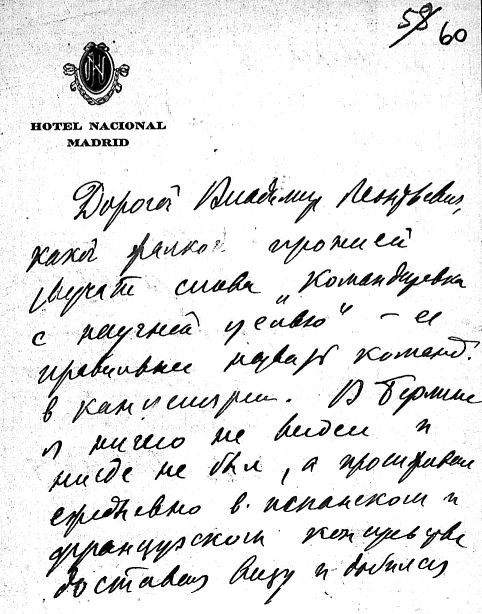 58
60
HN
HOTEL NACIONAL
MADRID
Дорогой Владимир Леонтьевич,
какой жалкой иронией
звучат слова „командировка
с научной целью" – ее
правильнее назвать команд.
в канцелярии. В Берлине
я ничего не видел и
нигде не был, а просиживал
ежедневно в испанском и
французском консульстве
доставая визу и добился